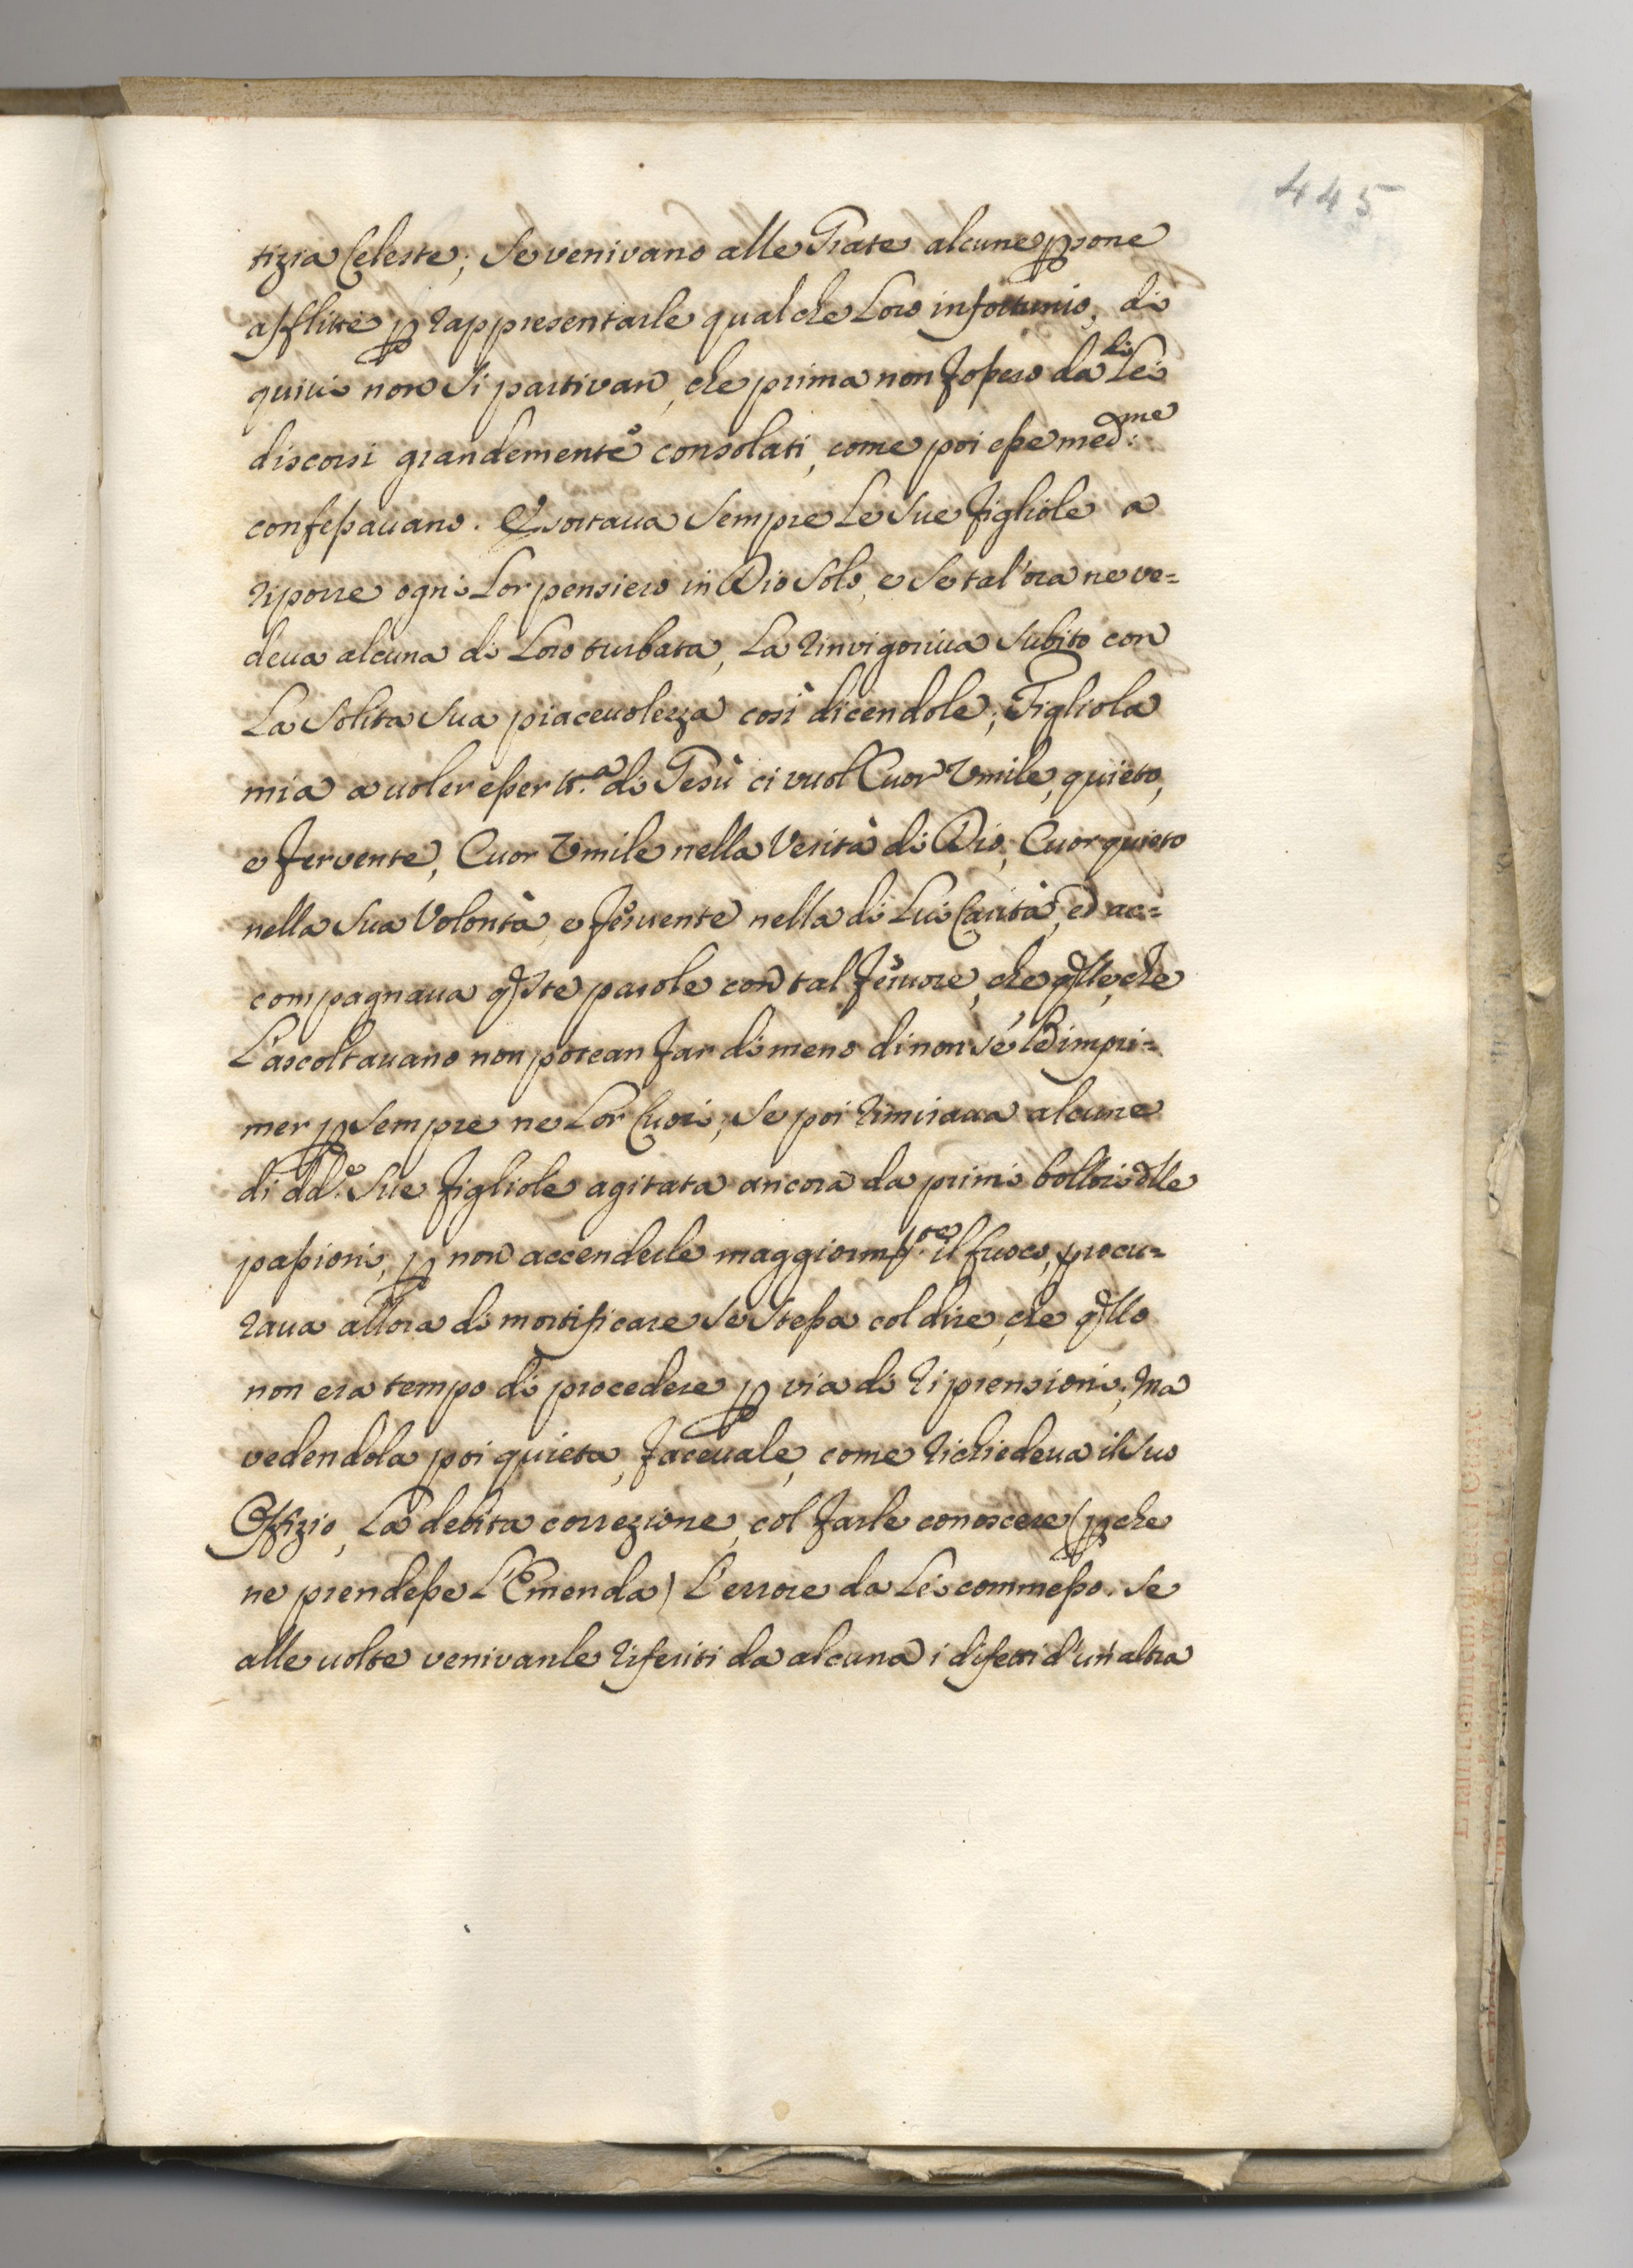 445
tizia Celeste; Se venivano alle Grate alcune ꝑsone
afflitte ꝑ rappresentarle qualche Loro infortunio, di
quivi non si partivan, che prima non fossero da di Lei
discorsi grandemente consolati, come poi esse med.me
confessauano. Esortaua sempre Le Sue figliole a
riporre ogni Lor pensiero in Dio Solo, e Se tal'ora ne ve=
deua alcuna di Loro turbata, La rinvigoriua Subito con
La Solita Sua piaceuolezza così dicendole; Figliola
mia a uoler esser di Gesù ci vuol Cuor Umile, quieto,
e fervente, Cuor Umile nella Verità di Dio, Cuor quieto
nella Sua Volontà, e feruente nella di Lui Carità, ed ac=
compagnaua qste parole con tal feruore, che qlle, che
L'ascoltauano non potean far di meno di non se Le impri=
mer ꝑ sempre ne Lor Cuori; Se poi rimiraua alcune
di dd.e Sue figliole agitata ancora da primi bollori dlle
passioni, ꝑ non accenderle maggiormte il fuoco, procu=
raua allora di mortificare Se Stessa col dire, che qllo
non era tempo di procedere ꝑ via di riprensioni; Ma
vedendola poi quieta, faceuale, come richiedeua il Suo
Offizio, La debita correzione, col farle conoscere (ꝑche
ne prendesse L'Emenda) L'errore da Lei commesso. Se
alle uolte venivanle riferiti da alcuna i difetti d'un'altra